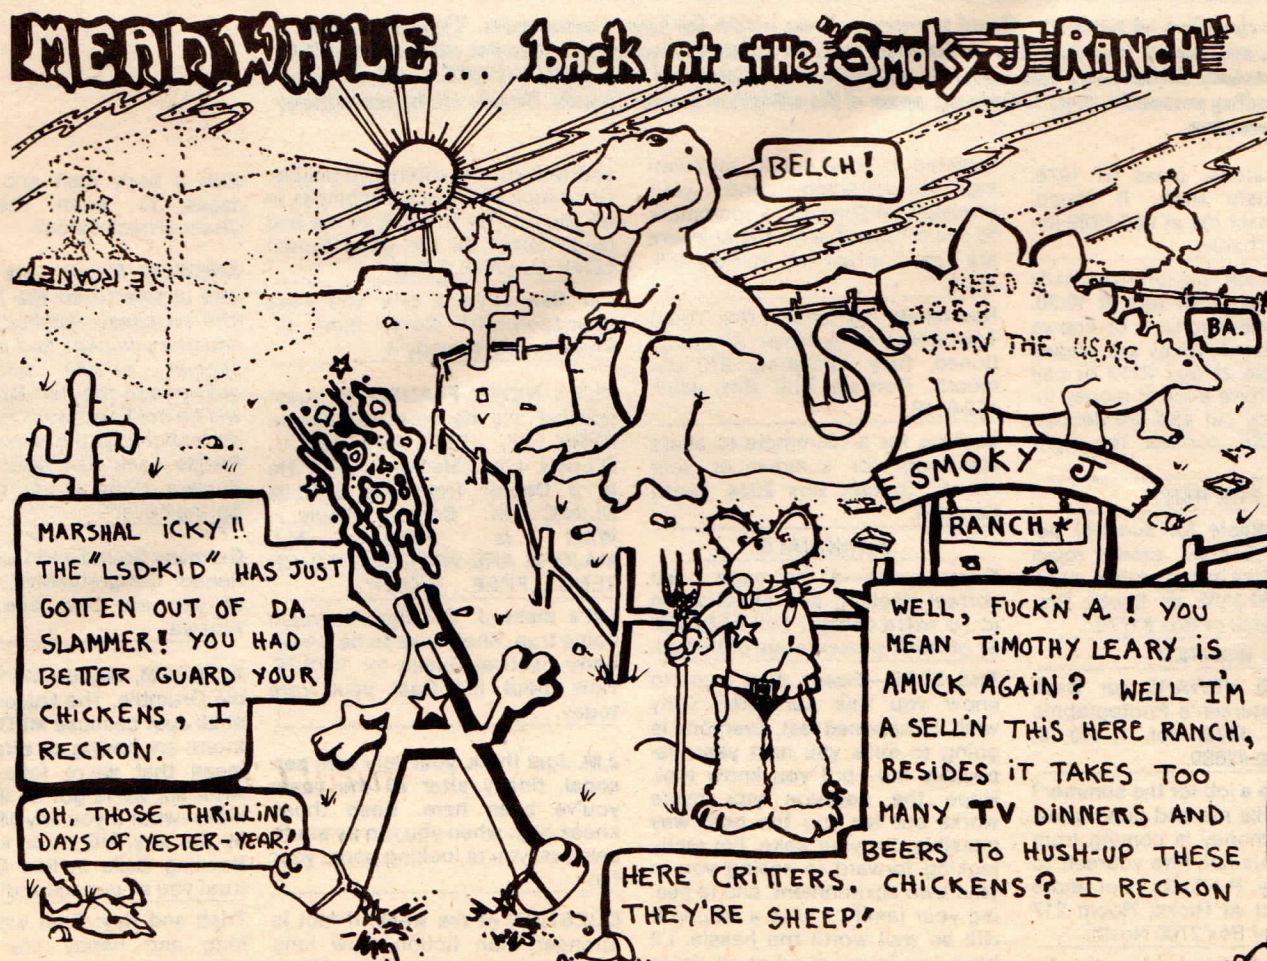 MEANWHILE... back AT the "Smoky J RANCH"
BELCH!
NEED A
JOB?
JOIN THE USMC
BA.
SMOKY J
RANCH*
MARSHAL iCKY!!
THE "LSD-KiD" HAS JUST
GOTTEN OUT OF DA
SLAMMER! YOU HAD
BETTER GUARD YOUR
CHICKENS, I
RECKON.
OH, THOSE THRILLING
DAYS OF YESTER-YEAR!
WELL, FUCK'N A.! YOU
MEAN TiMOTHY LEARY iS
AMUCK AGAiN? WELL I'M
A SELL'N THiS HERE RANCH,
BESiDES iT TAKES TOO
MANY TV DiNNERS AND
BEERS TO HUSH UP THESE
HERE CRiTTERS. CHiCKENS? I RECKON
THEY'RE SHEEP!